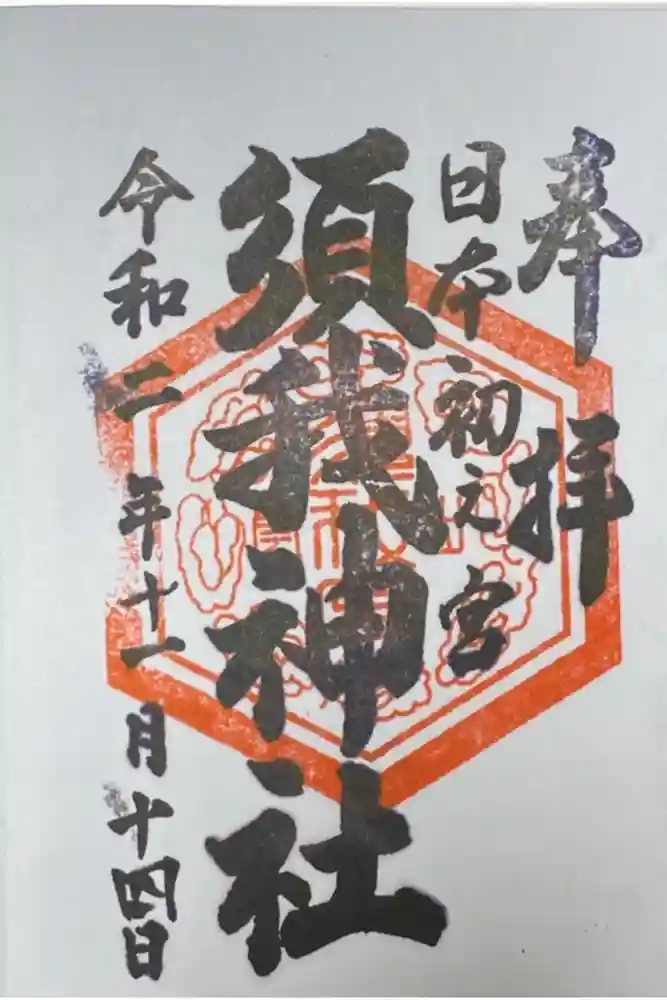 奉拝
日本初之宮
須我神社
令和二年十一月十四日